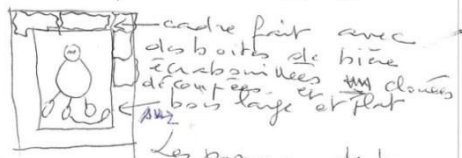 cadre fait avec
des boites de bière
écrabouillées
découpées et clouées
sur bois large et plat
Les